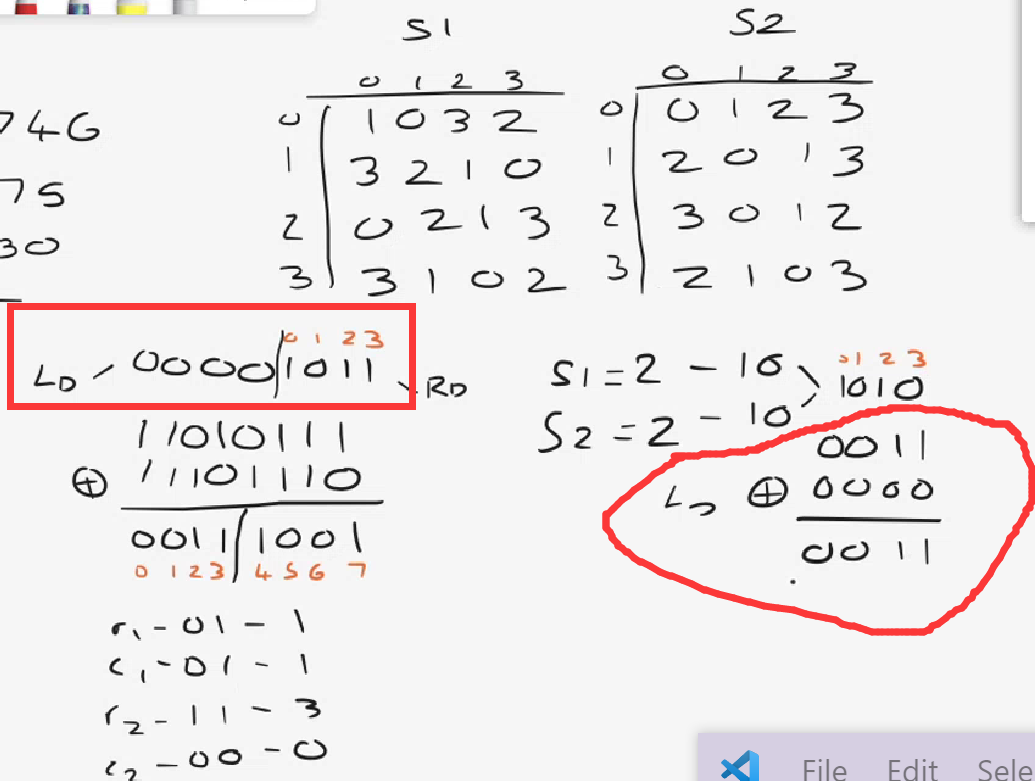 S1
0 1 2 3
0 1 0 3 2
1 3 2 1 0
2 0 2 1 3
3 3 1 0 2
S2
0 1 2 3
0 0 1 2 3
1 2 0 1 3
2 3 0 1 2
3 2 1 0 3
746
75
30
0 1 2 3
LD - 0000/1011 - RD
11010111
⊕ 11101110
0011/1001
0 1 2 3 4 5 6 7
r1 - 01 - 1
c1 - 01 - 1
r2 - 11 - 3
c2 - 00 - 0
S1 = 2 - 10
S2 = 2 - 10
0 1 2 3
1010
0011
LD ⊕ 0000
0011
File Edit Sele